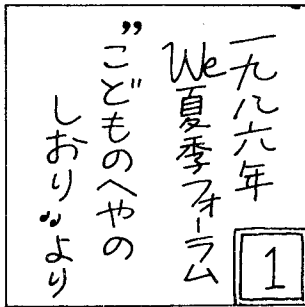 一九八六年
We夏季フォーラム
”こどものへやの
しおり”より
1